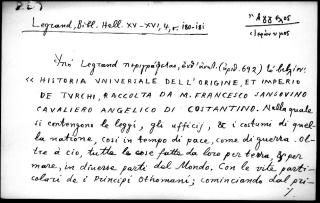 Legrand, Bibl. Hell. XV-XVI, 4, σ. 180-181
Ἄγγελος
Ὑπὸ Legrand περιγράφεται, (ἀριθ. 692) τὸ βιβλίον:
« HISTORIA VNIVERSALE DELL'ORIGINE, ET IMPERIO
DE TVRCHI, RACCOLTA DA M. FRANCESCO SANSOVINO
CAVALIERO ANGELICO DI COSTANTINO. Nella quale
si contengono le leggi, gli ufficij, & i costumi di quel-
la natione, così in tempo di pace, come di guerra. Ol-
tre à ciò, tutte le cose fatte da loro per terra, & per
mare, in diverse parti del Mondo. Con le vite parti-
colari de i Principi Othomani; cominciando dal pri-